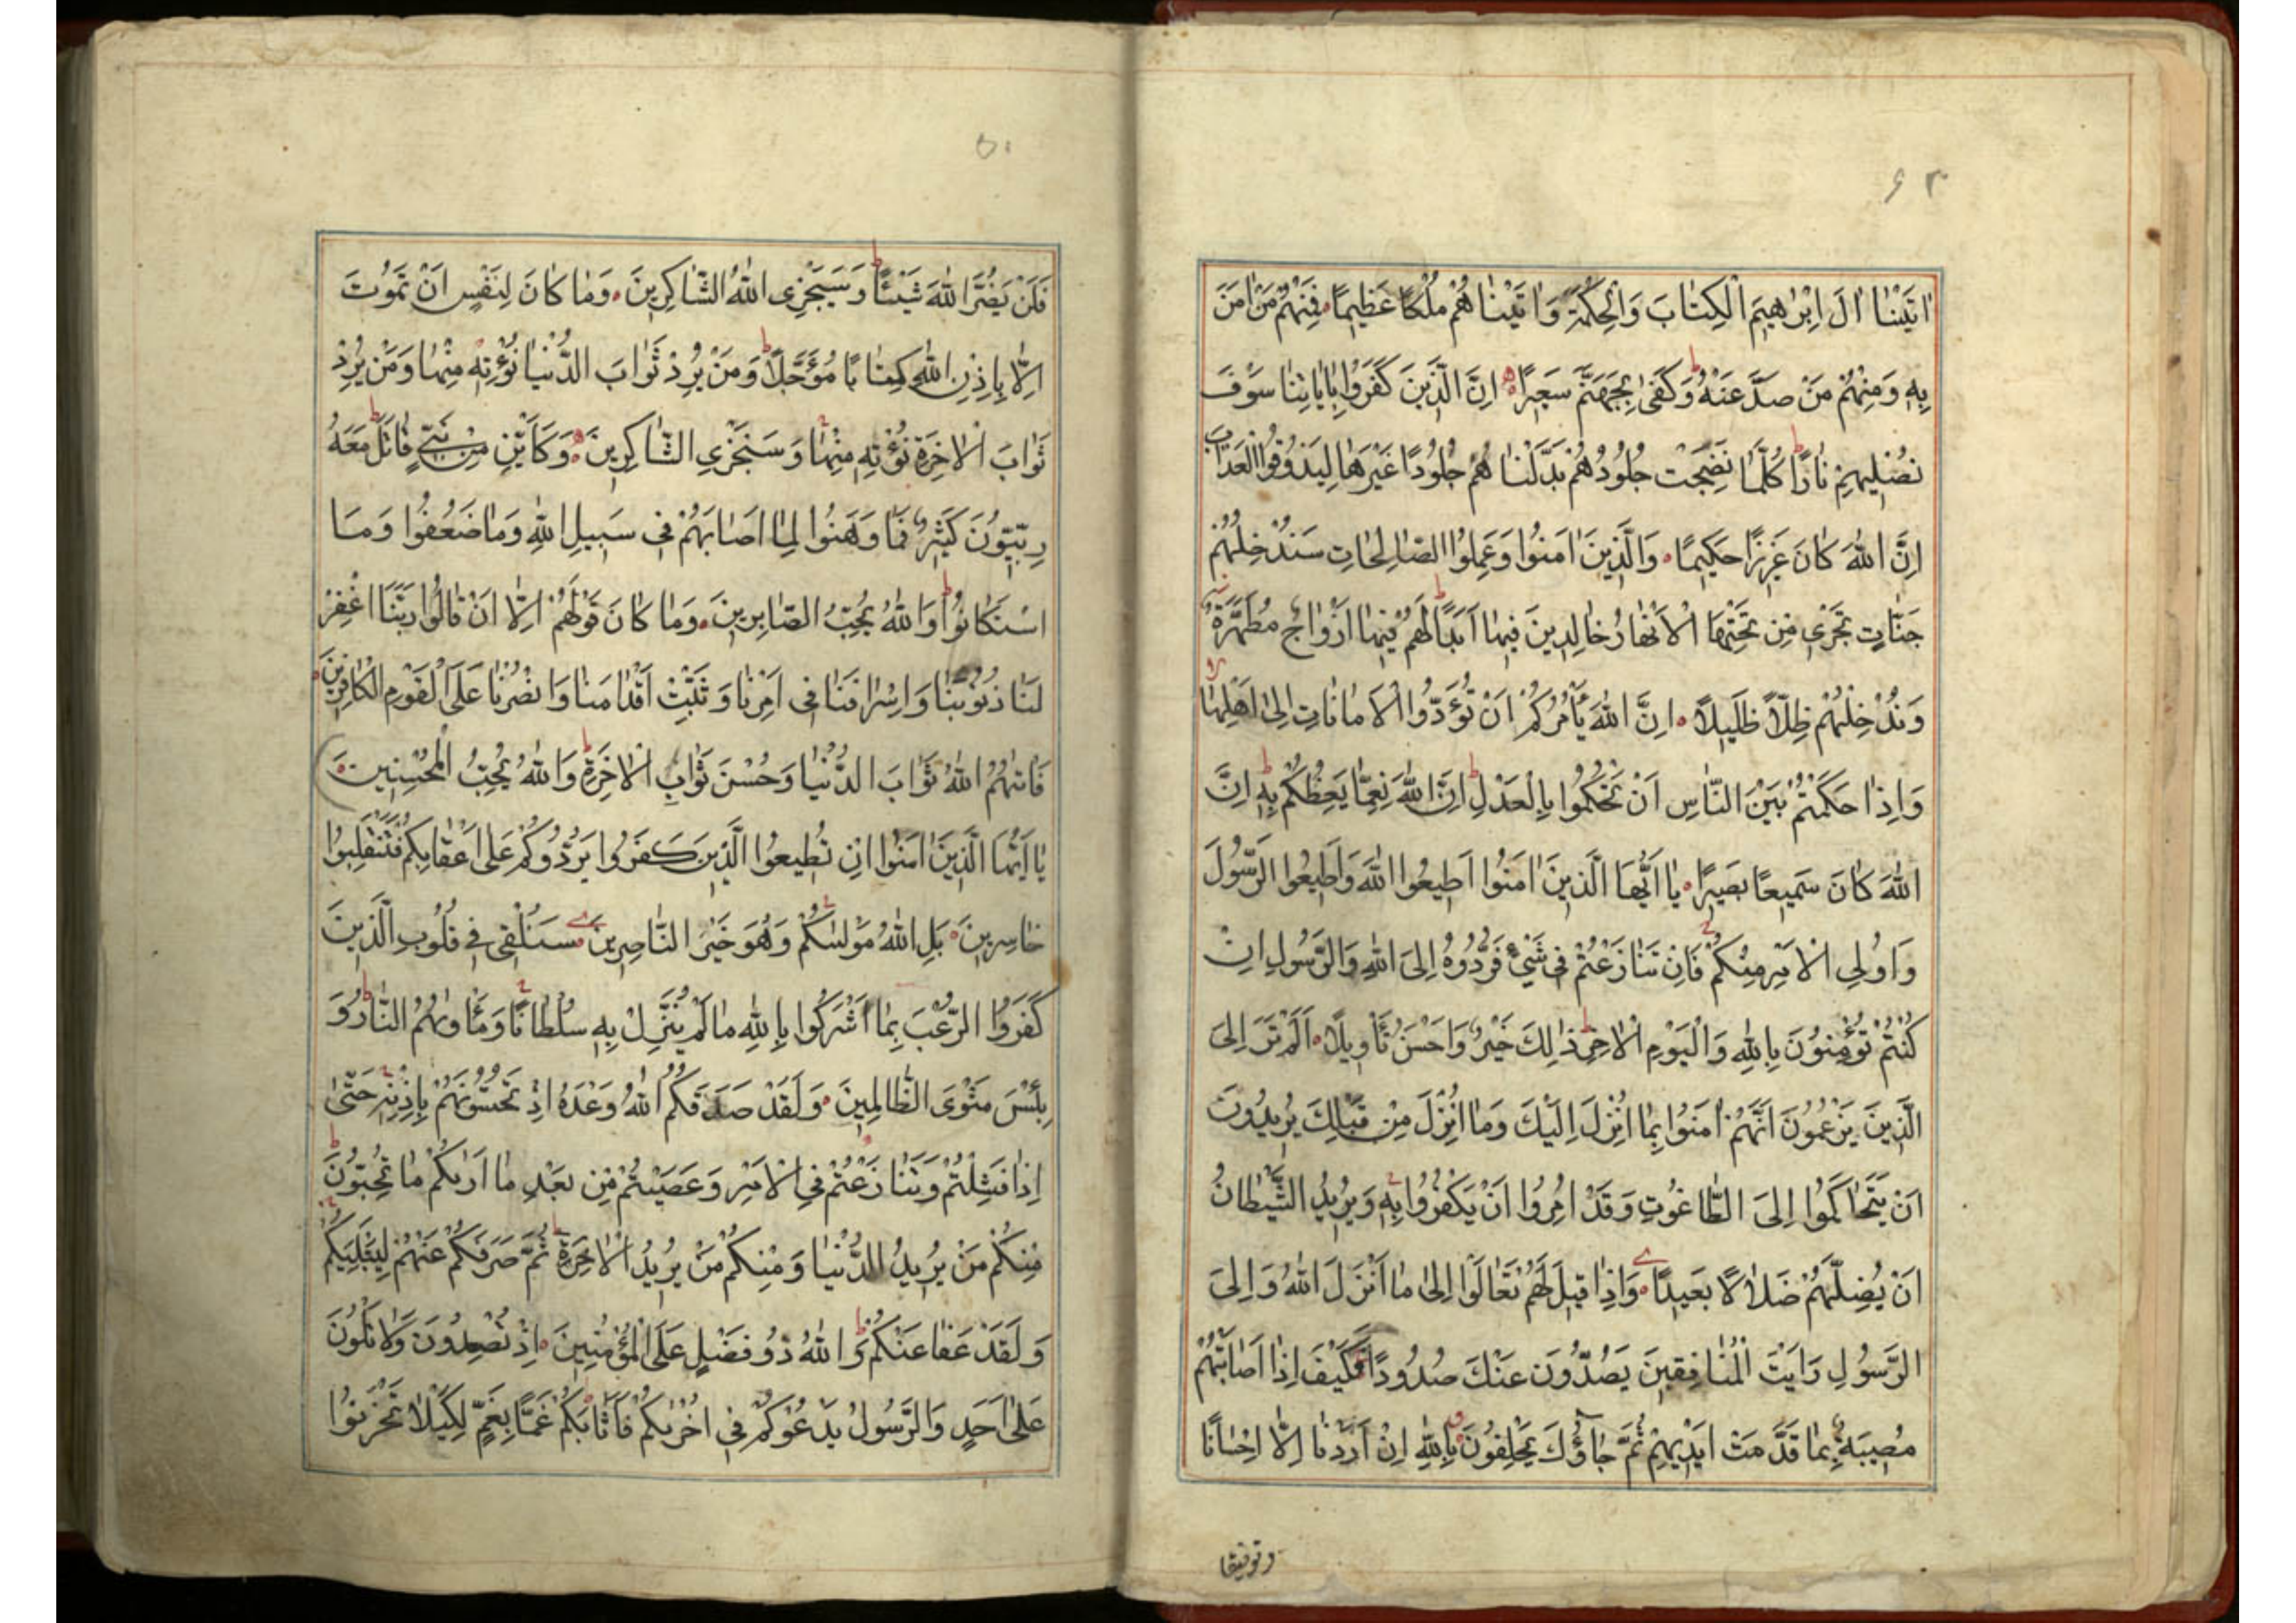 ۶۳
اٰتَيْنٰا اٰلَ اِبْرٰهيمَ الْكِتٰابَ وَالْحِكْمَةَ وَاٰتَيْنٰاهُمْ مُلْكًا عَظيمًا فَمِنْهُمْ مَنْ اٰمَنَ
بِهِ وَمِنْهُمْ مَنْ صَدَّ عَنْهُ وَكَفٰى بِجَهَنَّمَ سَعيرًا اِنَّ الَّذينَ كَفَرُوا بِاٰيٰاتِنٰا سَوْفَ
نُصْليهِمْ نٰارًا كُلَّمٰا نَضِجَتْ جُلُودُهُمْ بَدَّلْنٰاهُمْ جُلُودًا غَيْرَهٰا لِيَذُوقُوا الْعَذٰابَ
اِنَّ اللّٰهَ كٰانَ عَزيزًا حَكيمًا وَالَّذينَ اٰمَنُوا وَعَمِلُوا الصّٰالِحٰاتِ سَنُدْخِلُهُمْ
جَنّٰاتٍ تَجْرى مِنْ تَحْتِهَا الْاَنْهٰارُ خٰالِدينَ فيهٰا اَبَدًا لَهُمْ فيهٰا اَزْوٰاجٌ مُطَهَّرَةٌ
وَنُدْخِلُهُمْ ظِلًّا ظَليلًا اِنَّ اللّٰهَ يَأْمُرُكُمْ اَنْ تُؤَدُّوا الْاَمٰانٰاتِ اِلٰى اَهْلِهٰا
وَاِذٰا حَكَمْتُمْ بَيْنَ النّٰاسِ اَنْ تَحْكُمُوا بِالْعَدْلِ اِنَّ اللّٰهَ نِعِمّٰا يَعِظُكُمْ بِهِ اِنَّ
اللّٰهَ كٰانَ سَميعًا بَصيرًا يٰا اَيُّهَا الَّذينَ اٰمَنُوا اَطيعُوا اللّٰهَ وَاَطيعُوا الرَّسُولَ
وَاُولِى الْاَمْرِ مِنْكُمْ فَاِنْ تَنٰازَعْتُمْ فى شَيْءٍ فَرُدُّوهُ اِلَى اللّٰهِ وَالرَّسُولِ اِنْ
كُنْتُمْ تُؤْمِنُونَ بِاللّٰهِ وَالْيَوْمِ الْاٰخِرِ ذٰلِكَ خَيْرٌ وَاَحْسَنُ تَأْويلًا اَلَمْ تَرَ اِلَى
الَّذينَ يَزْعُمُونَ اَنَّهُمْ اٰمَنُوا بِمٰا اُنْزِلَ اِلَيْكَ وَمٰا اُنْزِلَ مِنْ قَبْلِكَ يُريدُونَ
اَنْ يَتَحٰاكَمُوا اِلَى الطّٰاغُوتِ وَقَدْ اُمِرُوا اَنْ يَكْفُرُوا بِهِ وَيُريدُ الشَّيْطٰانُ
اَنْ يُضِلَّهُمْ ضَلٰالًا بَعيدًا وَاِذٰا قيلَ لَهُمْ تَعٰالَوْا اِلٰى مٰا اَنْزَلَ اللّٰهُ وَاِلَى
الرَّسُولِ رَاَيْتَ الْمُنٰافِقينَ يَصُدُّونَ عَنْكَ صُدُودًا فَكَيْفَ اِذٰا اَصٰابَتْهُمْ
مُصيبَةٌ بِمٰا قَدَّمَتْ اَيْديهِمْ ثُمَّ جٰاؤُكَ يَحْلِفُونَ بِاللّٰهِ اِنْ اَرَدْنٰا اِلّٰا اِحْسٰانًا
وتوفيقا
۵۱
فَلَنْ يَضُرَّ اللّٰهَ شَيْئًا وَسَيَجْزِى اللّٰهُ الشّٰاكِرينَ وَمٰا كٰانَ لِنَفْسٍ اَنْ تَمُوتَ
اِلّٰا بِاِذْنِ اللّٰهِ كِتٰابًا مُؤَجَّلًا وَمَنْ يُرِدْ ثَوٰابَ الدُّنْيٰا نُؤْتِهِ مِنْهٰا وَمَنْ يُرِدْ
ثَوٰابَ الْاٰخِرَةِ نُؤْتِهِ مِنْهٰا وَسَنَجْزِى الشّٰاكِرينَ وَكَاَيِّنْ مِنْ نَبِيٍّ قٰاتَلَ مَعَهُ
رِبِّيُّونَ كَثيرٌ فَمٰا وَهَنُوا لِمٰا اَصٰابَهُمْ فى سَبيلِ اللّٰهِ وَمٰا ضَعُفُوا وَمَا
اسْتَكٰانُوا وَاللّٰهُ يُحِبُّ الصّٰابِرينَ وَمٰا كٰانَ قَوْلَهُمْ اِلّٰا اَنْ قٰالُوا رَبَّنَا اغْفِرْ
لَنٰا ذُنُوبَنٰا وَاِسْرٰافَنٰا فى اَمْرِنٰا وَثَبِّتْ اَقْدٰامَنٰا وَانْصُرْنٰا عَلَى الْقَوْمِ الْكٰافِرينَ
فَاٰتٰىهُمُ اللّٰهُ ثَوٰابَ الدُّنْيٰا وَحُسْنَ ثَوٰابِ الْاٰخِرَةِ وَاللّٰهُ يُحِبُّ الْمُحْسِنينَ
يٰا اَيُّهَا الَّذينَ اٰمَنُوا اِنْ تُطيعُوا الَّذينَ كَفَرُوا يَرُدُّوكُمْ عَلٰى اَعْقٰابِكُمْ فَتَنْقَلِبُوا
خٰاسِرينَ بَلِ اللّٰهُ مَوْلٰىكُمْ وَهُوَ خَيْرُ النّٰاصِرينَ سَنُلْقى فى قُلُوبِ الَّذينَ
كَفَرُوا الرُّعْبَ بِمٰا اَشْرَكُوا بِاللّٰهِ مٰا لَمْ يُنَزِّلْ بِهِ سُلْطٰانًا وَمَأْوٰىهُمُ النّٰارُ وَ
بِئْسَ مَثْوَى الظّٰالِمينَ وَلَقَدْ صَدَقَكُمُ اللّٰهُ وَعْدَهُ اِذْ تَحُسُّونَهُمْ بِاِذْنِهِ حَتّٰى
اِذٰا فَشِلْتُمْ وَتَنٰازَعْتُمْ فِى الْاَمْرِ وَعَصَيْتُمْ مِنْ بَعْدِ مٰا اَرٰىكُمْ مٰا تُحِبُّونَ
مِنْكُمْ مَنْ يُريدُ الدُّنْيٰا وَمِنْكُمْ مَنْ يُريدُ الْاٰخِرَةَ ثُمَّ صَرَفَكُمْ عَنْهُمْ لِيَبْتَلِيَكُمْ
وَلَقَدْ عَفٰا عَنْكُمْ وَاللّٰهُ ذُو فَضْلٍ عَلَى الْمُؤْمِنينَ اِذْ تُصْعِدُونَ وَلٰا تَلْوُنَ
عَلٰى اَحَدٍ وَالرَّسُولُ يَدْعُوكُمْ فى اُخْرٰىكُمْ فَاَثٰابَكُمْ غَمًّا بِغَمٍّ لِكَيْلٰا تَحْزَنُوا